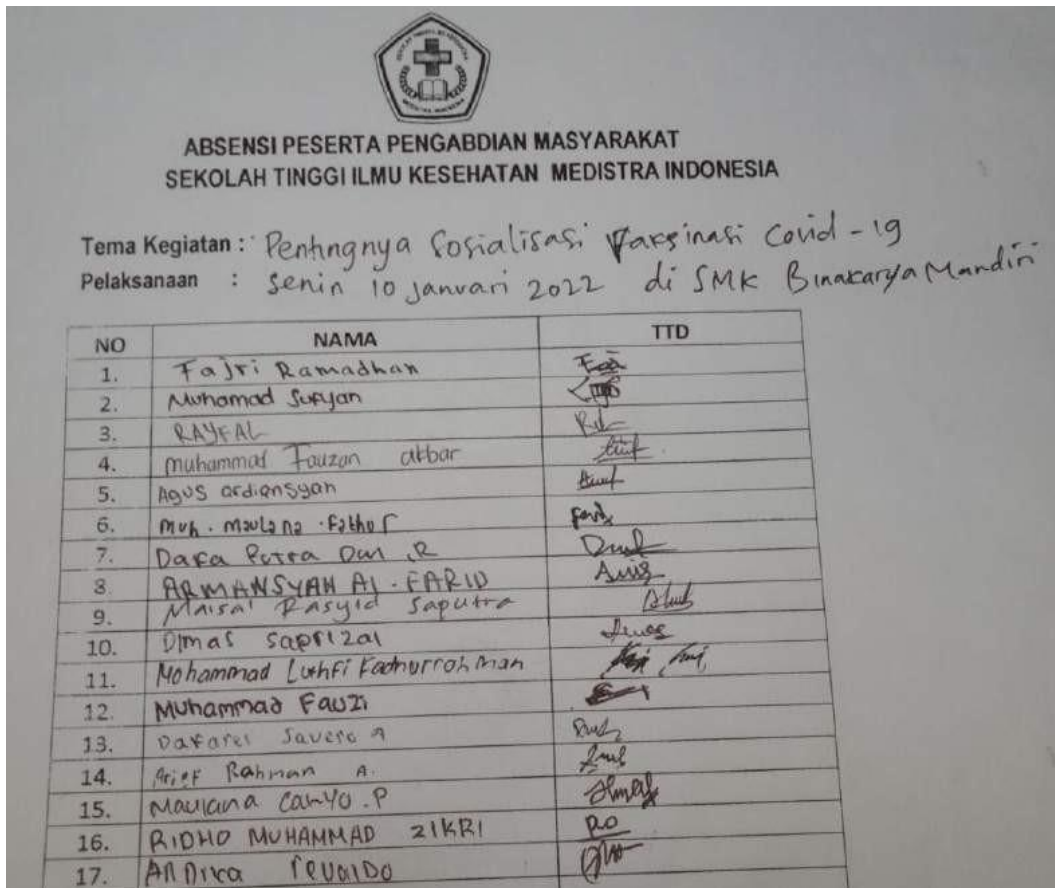 ABSENSI PESERTA PENGABDIAN MASYARAKAT
SEKOLAH TINGGI ILMU KESEHATAN MEDISTRA INDONESIA
Tema Kegiatan : Pentingnya Sosialisasi Vaksinasi Covid-19
Pelaksanaan : Senin 10 Januari 2022 di SMK Binakarya Mandiri
NO NAMA TTD
1. Fajri Ramadhan
2. Muhamad Sufyan
3. RAYFAL
4. muhammad Fauzan akbar
5. Agus ardiansyah
6. Muh. maulana .Fathur
7. Dafa Putra Dwi .R
8. ARMANSYAH AL-FARID
9. Maisal Rasyid Saputra
10. Dimas saprizal
11. Mohammad Luthfi Fadhurrohman
12. Muhammad Fauzi
13. Dafarel Savero A
14. Arief Rahman A.
15. Maulana Cahyo .P
16. RIDHO MUHAMMAD ZIKRI
17. Andika revaldo